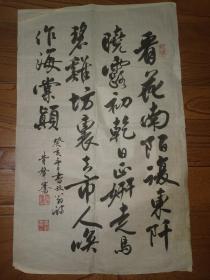 看花南陌復東阡
曉露初乾日正妍走馬
碧雞坊裏去市人喚
作海棠顛
癸亥年書放翁詩